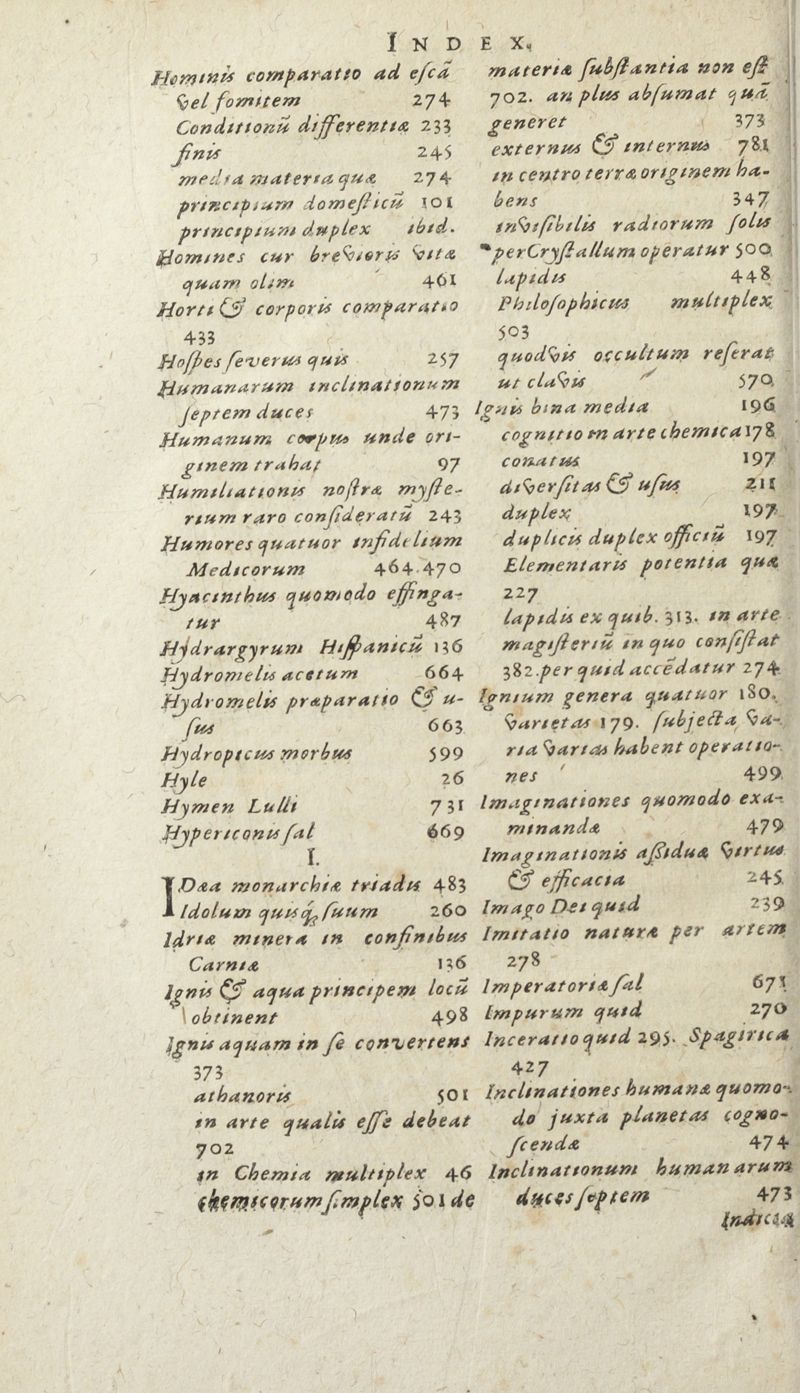 INDEX.
Hominis comparatio ad eſcā
vel fomitem 274
Conditionū differentiæ 233
finis 245
media materia quæ 274
principium domeſticū 101
principium duplex ibid.
Homines cur brevioris vitæ
quam olim 461
Horti & corporis comparatio
433
Hoſpes ſeverus quis 257
Humanarum inclinationum
ſeptem duces 473
Humanum corpus unde ori-
ginem trahat 97
Humiliationis noſtræ myſte-
rium raro conſideratū 243
Humores quatuor infidelium
Medicorum 464.470
Hyacinthus quomodo effinga-
tur 487
Hydrargyrum Hiſpanicū 136
Hydromelis acetum 664
Hydromelis præparatio & u-
ſus 663
Hydropicus morbus 599
Hyle 26
Hymen Lulli 731
Hypericonis ſal 669
I.
IDææ monarchiæ triadis 483
Idolum quisq; ſuum 260
Idriæ minera in confinibus
Carniæ 136
Ignis & aqua principem locū
obtinent 498
Ignis aquam in ſe convertens
373
athanoris 501
in arte qualis eſſe debeat
702
in Chemia multiplex 46
chemicorum ſimplex 501 de
materiæ ſubſtantia non eſt
702. an plus abſumat quā
generet 373
externus & internus 781
in centro terræ originem ha-
bens 347
inviſibilis radiorum ſolis
perCryſtallum operatur 500
lapidis 448
Philoſophicus multiplex
503
quodvis occultum referat
ut clavis 570
Ignis bina media 196
cognitio in arte chemica 178
conatus 197
diverſitas & uſus 211
duplex 197
duplicis duplex officiū 197
Elementaris potentia quæ
227
lapidis ex quib. 313. in arte
magiſteriū in quo conſiſtat
382. per quid accēdatur 274
Ignium genera quatuor 180.
varietas 179. ſubjecta va-
ria varias habent operatio-
nes 499
Imaginationes quomodo exa-
minandæ 479
Imaginationis aſſidua virtus
& efficacia 245
Imago Dei quid 239
Imitatio naturæ per artem
278
Imperatoriæ ſal 671
Impurum quid 270
Inceratio quid 295. Spagirica
427
Inclinationes humanæ quomo-
do juxta planetas cogno-
ſcendæ 474
Inclinationum humanarum
duces ſeptem 473
Indicia